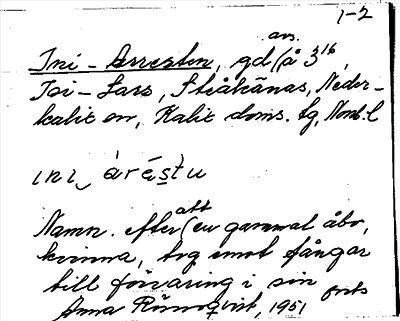 1-2
ans.
Ini-Arresten, gd (å 3^16
Toi-Lars, Stråkanäs, Neder-
kalix sn, Kalix doms. lg, Nord. l
ini‿ àréstu
Namn. efter (att en gammal åbo,
kvinna, tog emot fångar
till förvaring i sin
forts
Anna Rönnqvist, 1951